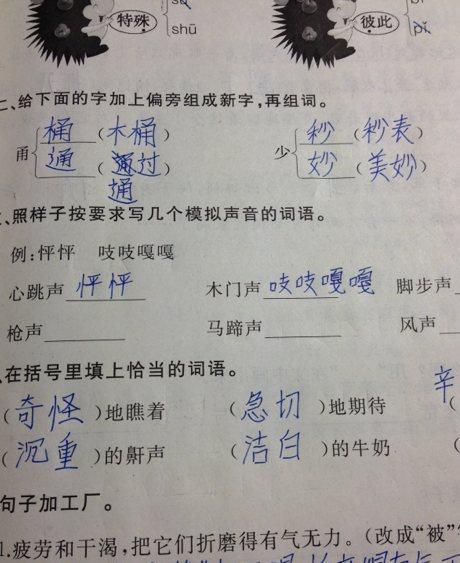 特殊 shū
彼此
二、给下面的字加上偏旁组成新字,再组词。
甬 桶(木桶) 少 秒(秒表)
通(通过) 妙(美妙)
通
、照样子按要求写几个模拟声音的词语。
例:怦怦 吱吱嘎嘎
心跳声怦怦 木门声吱吱嘎嘎 脚步声
枪声 马蹄声 风声
、在括号里填上恰当的词语。
辛
(奇怪)地瞧着 (急切)地期待 (
(沉重)的鼾声 (洁白)的牛奶 (
句子加工厂。
1.疲劳和干渴,把它们折磨得有气无力。(改成“被”